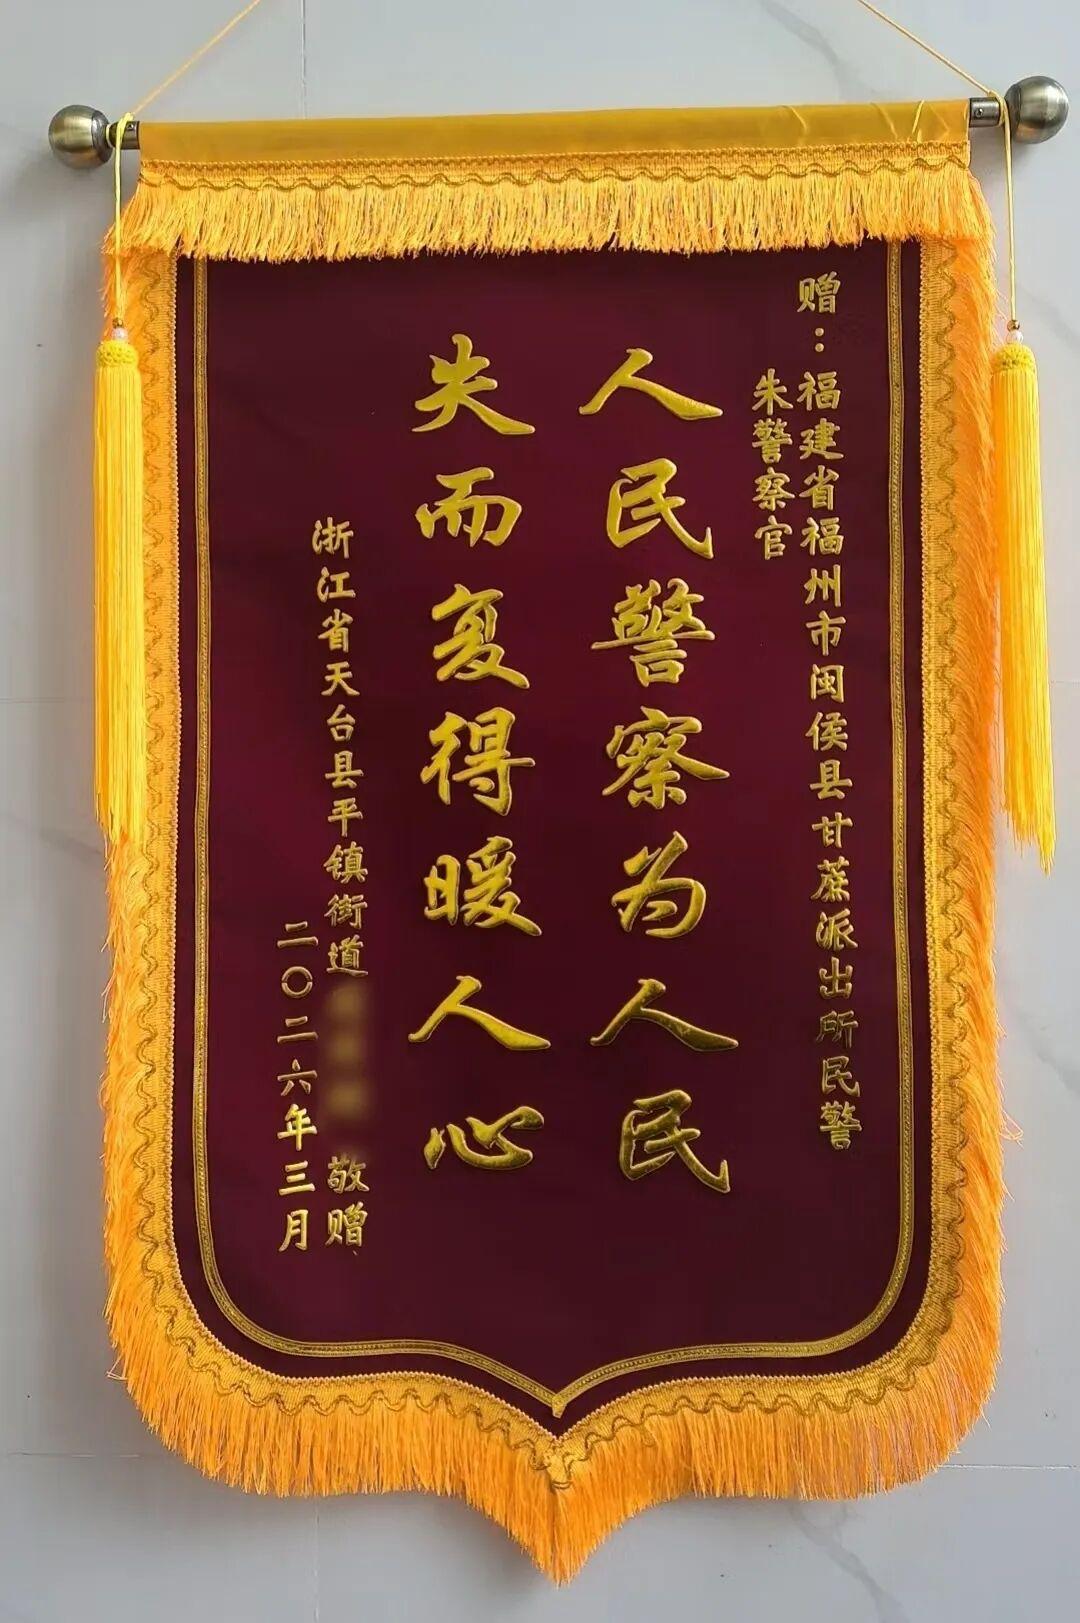 赠：福建省福州市闽侯县甘蔗派出所民警
朱警察官
人民警察为人民
失而复得暖人心
浙江省天台县平镇街道 敬赠
二〇二六年三月